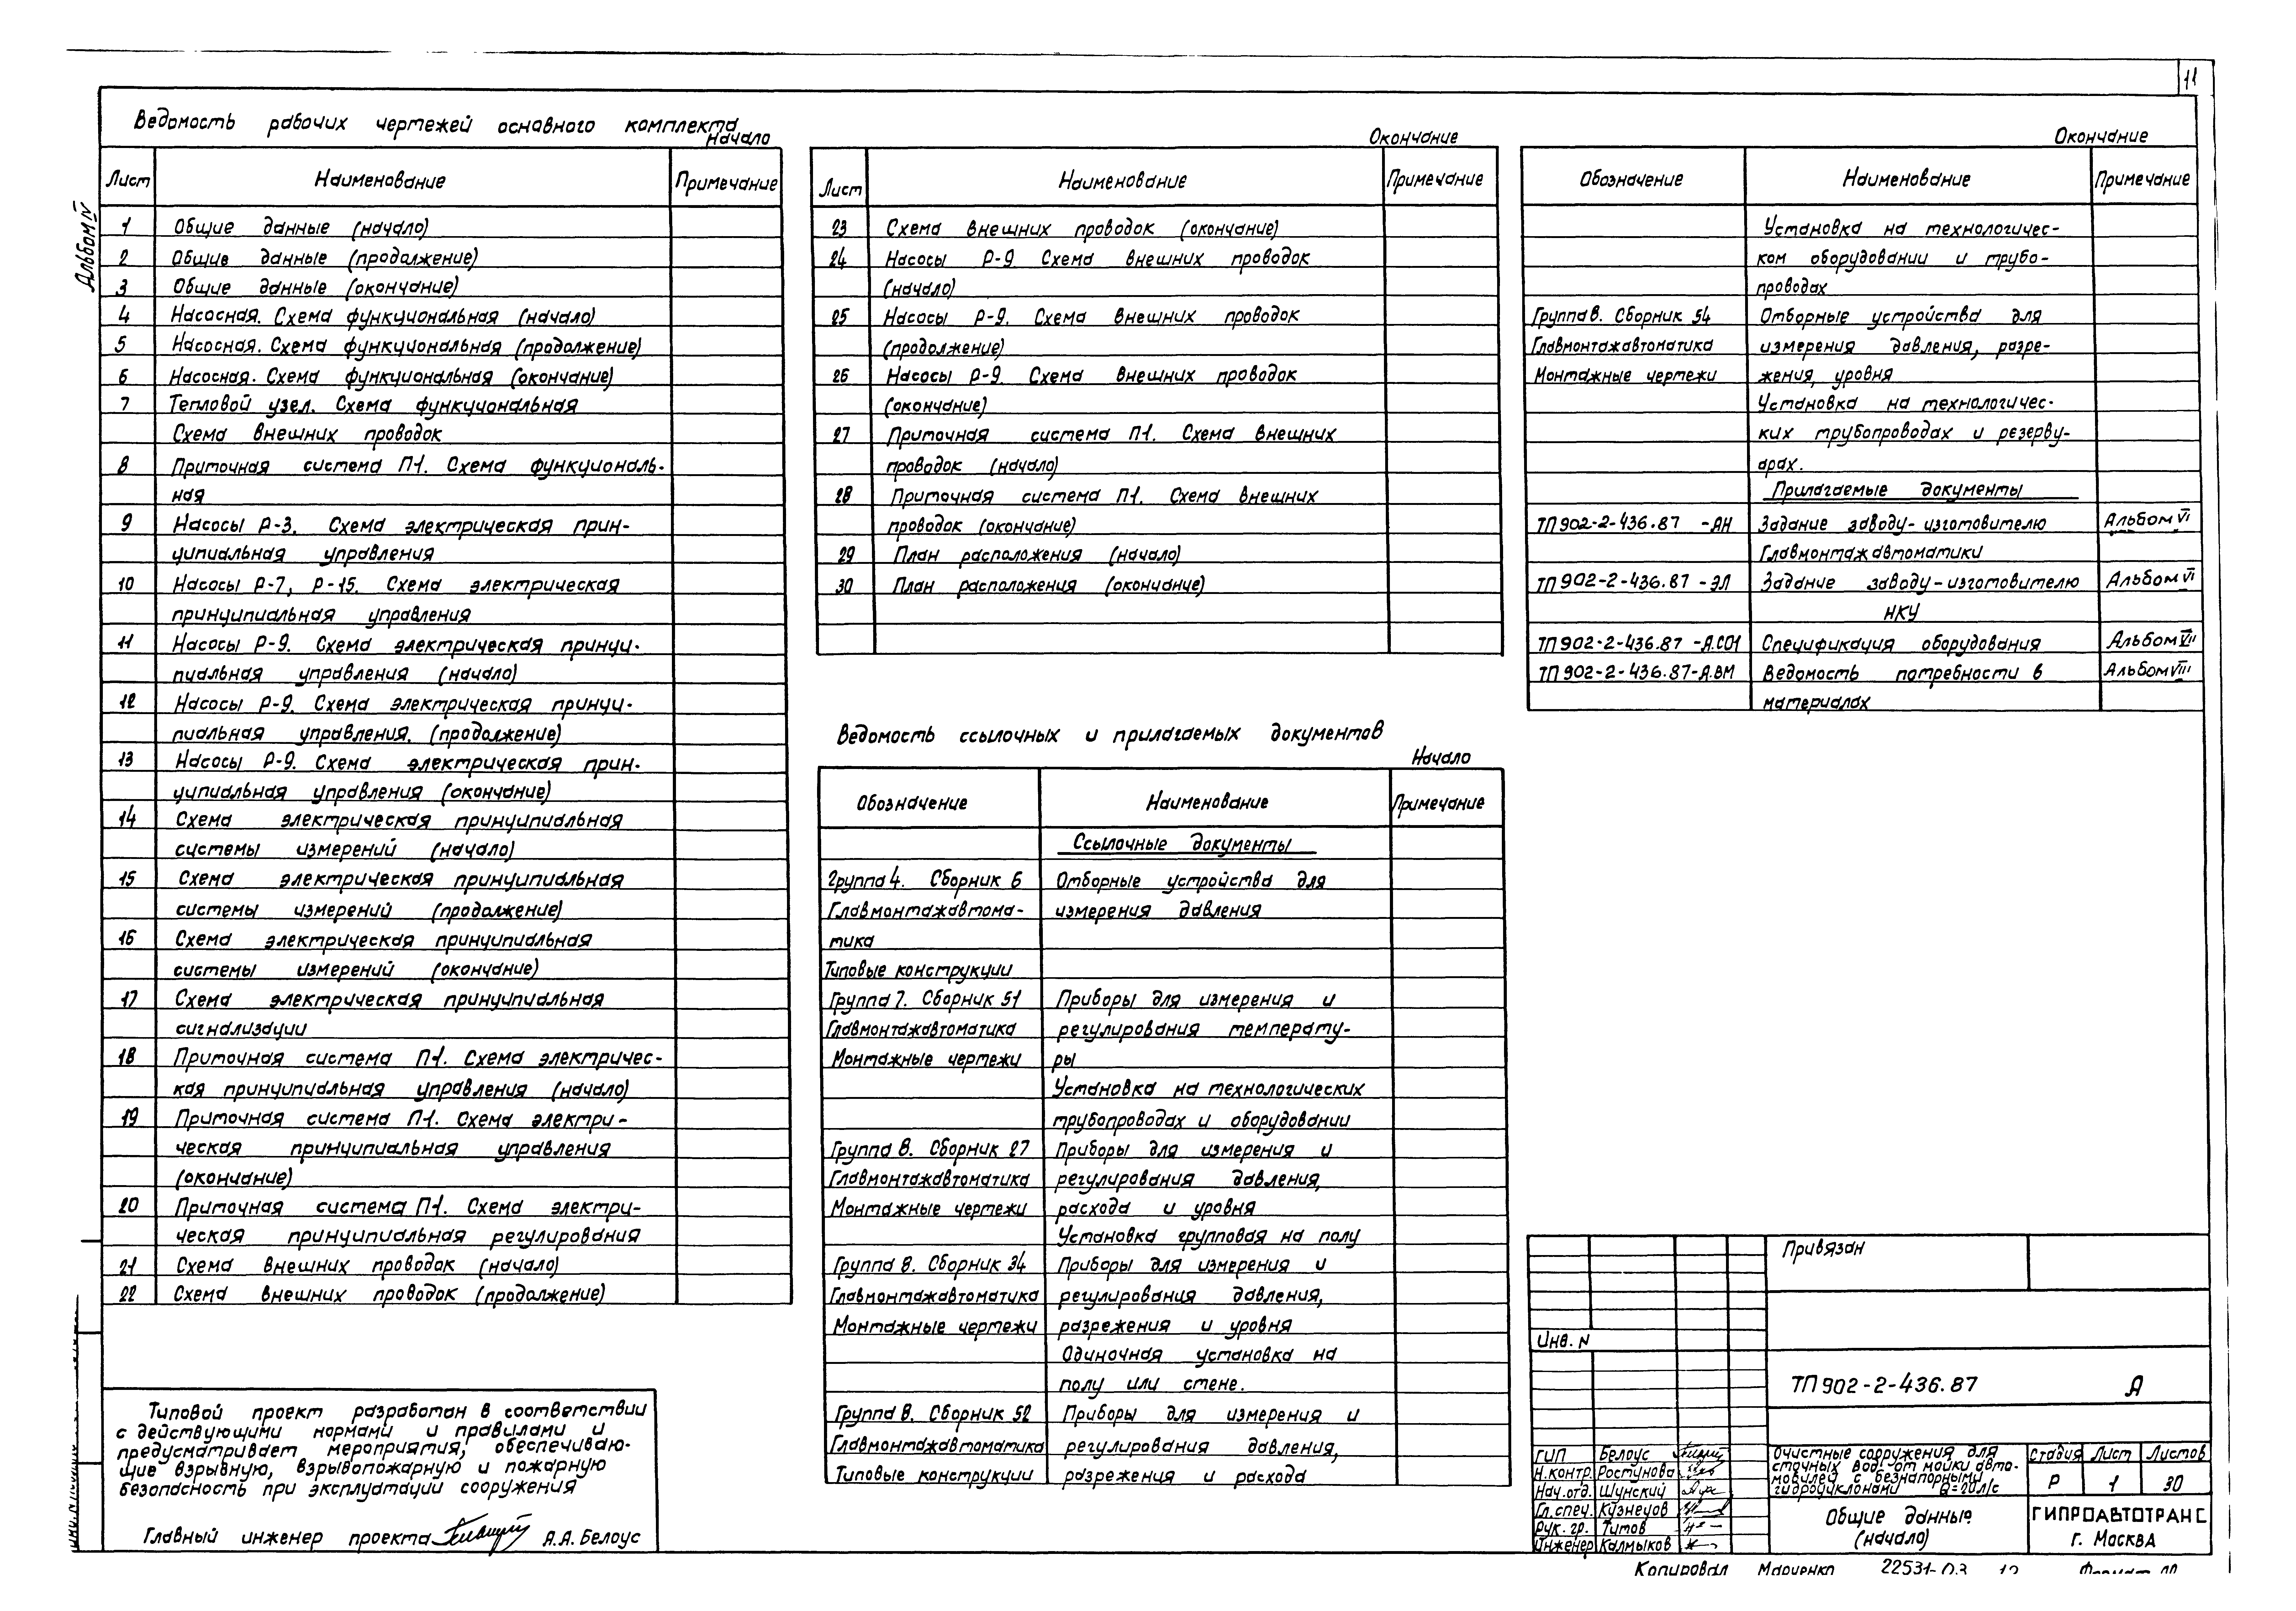 11
Альбом IV
Ведомость рабочих чертежей основного комплекта
Начало
Лист Наименование Примечание
1 Общие данные (начало)
2 Общие данные (продолжение)
3 Общие данные (окончание)
4 Насосная. Схема функциональная (начало)
5 Насосная. Схема функциональная (продолжение)
6 Насосная. Схема функциональная (окончание)
7 Тепловой узел. Схема функциональная
Схема внешних проводок
8 Приточная система П-1. Схема функциональ-
ная
9 Насосы Р-3. Схема электрическая прин-
ципиальная управления
10 Насосы Р-7, Р-15. Схема электрическая
принципиальная управления
11 Насосы Р-9. Схема электрическая принци-
пиальная управления (начало)
12 Насосы Р-9. Схема электрическая принци-
пиальная управления. (продолжение)
13 Насосы Р-9. Схема электрическая прин-
ципиальная управления (окончание)
14 Схема электрическая принципиальная
системы измерений (начало)
15 Схема электрическая принципиальная
системы измерений (продолжение)
16 Схема электрическая принципиальная
системы измерений (окончание)
17 Схема электрическая принципиальная
сигнализации
18 Приточная система П-1. Схема электричес-
кая принципиальная управления (начало)
19 Приточная система П-1. Схема электри-
ческая принципиальная управления
(окончание)
20 Приточная система П-1. Схема электри-
ческая принципиальная регулирования
21 Схема внешних проводок (начало)
22 Схема внешних проводок (продолжение)
Типовой проект разработан в соответствии
с действующими нормами и правилами и
предусматривает мероприятия, обеспечиваю-
щие взрывную, взрывопожарную и пожарную
безопасность при эксплуатации сооружения
Главный инженер проекта А.А. Белоус
Окончание
Лист Наименование Примечание
23 Схема внешних проводок (окончание)
24 Насосы Р-9 Схема внешних проводок
(начало)
25 Насосы Р-9. Схема внешних проводок
(продолжение)
26 Насосы Р-9. Схема внешних проводок
(окончание)
27 Приточная система П-1. Схема внешних
проводок (начало)
28 Приточная система П-1. Схема внешних
проводок (окончание)
29 План расположения (начало)
30 План расположения (окончание)
Ведомость ссылочных и прилагаемых документов
Начало
Обозначение Наименование Примечание
Ссылочные документы
Группа 4. Сборник 6 Отборные устройства для
Главмонтажавтома- измерения давления
тика
Типовые конструкции
Группа 7. Сборник 51 Приборы для измерения и
Главмонтажавтоматика регулирования температу-
Монтажные чертежи ры
Установка на технологических
трубопроводах и оборудовании
Группа 8. Сборник 27 Приборы для измерения и
Главмонтажавтоматика регулирования давления,
Монтажные чертежи расхода и уровня
Установка групповая на полу
Группа 8. Сборник 34 Приборы для измерения и
Главмонтажавтоматика регулирования давления,
Монтажные чертежи разрежения и уровня
Одиночная установка на
полу или стене.
Группа 8. Сборник 52 Приборы для измерения и
Главмонтажавтоматика регулирования давления,
Типовые конструкции разрежения и расхода
Окончание
Обозначение Наименование Примечание
Установка на технологичес-
ком оборудовании и трубо-
проводах
Группа 8. Сборник 54 Отборные устройства для
Главмонтажавтоматика измерения давления, разре-
Монтажные чертежи жения, уровня
Установка на технологичес-
ких трубопроводах и резерву-
арах.
Прилагаемые документы
ТП 902-2-436.87 -АН Задание заводу-изготовителю Альбом VI
Главмонтажавтоматики
ТП 902-2-436.87 -ЭЛ Задание заводу-изготовителю Альбом VI
НКУ
ТП 902-2-436.87 -А.СО1 Спецификация оборудования Альбом VII
ТП 902-2-436.87-А.ВМ Ведомость потребности в Альбом VIII
материалах
Привязан
Инв. N
ТП 902-2-436.87 А
ГИП Белоус
Н.контр. Ростунова
Нач.отд. Шунский
Гл.спец. Кузнецов
Рук.гр. Титов
Инженер Калмыков
Очистные сооружения для
сточных вод от мойки авто-
мобилей с безнапорными
гидроциклонами Q=20л/с
Стадия Лист Листов
Р 1 30
Общие данные
(начало)
ГИПРОАВТОТРАНС
г. Москва
Копировал Мариенко 22531-03 12 Формат